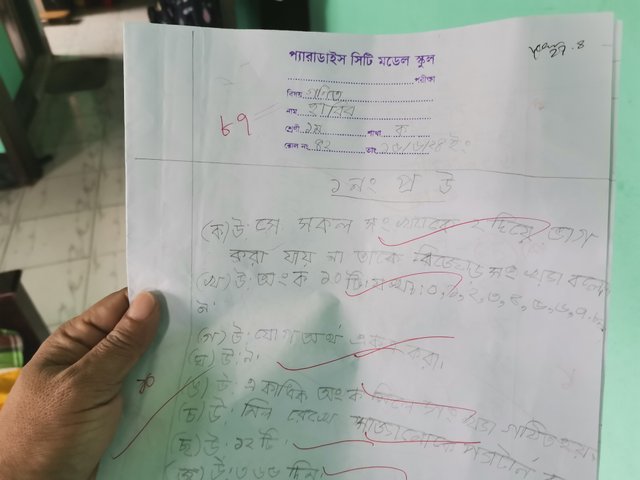 প্যারাডাইস সিটি মডেল স্কুল
পরীক্ষা
বিষয় গণিত
নাম হাবিব
শ্রেণী ১ম শাখা ক
রোল নং ৪২ তাং ১৬/৬/২৪ ইং
৮৭
১ নং প্র উ
(ক) উ: যে সকল সংখ্যাকে ২ দিয়ে ভাগ
করা যায় না তাকে বিজোড় সংখ্যা বলে।
(খ) উ: অংক ১০টি। যথা: ০, ১, ২, ৩, ৪, ৫, ৬, ৭, ৮,
৯।
(গ) উ: যোগ অর্থ একত্র করা।
(ঘ) উ: ৯.
(ঙ) উ: একাধিক অংক
(চ) উ: মিল রেখে সাজানোকে প্যাটার্ন
(ছ) উ: ১২ টি.
(জ) উ: ৩৬৫ দিন।